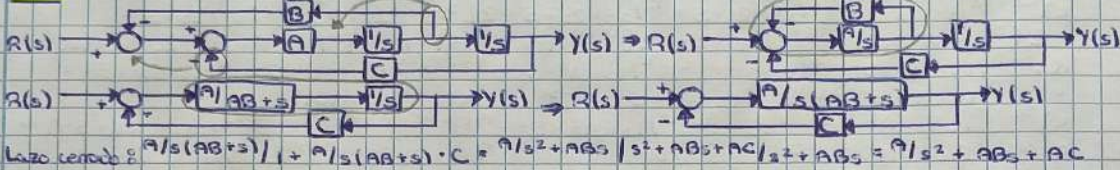 B B
R(s) + - + - A 1/s 1/s Y(s) ⇒ R(s) + - - A/s 1/s Y(s)
C C
R(s) + - A/AB+s 1/s Y(s) ⇒ R(s) + - A/s(AB+s) Y(s)
C C
Lazo cerrado: A/s(AB+s)/1 + A/s(AB+s)·C = A/s²+ABs/s²+ABs+AC/s²+ABs = A/s² + ABs + AC